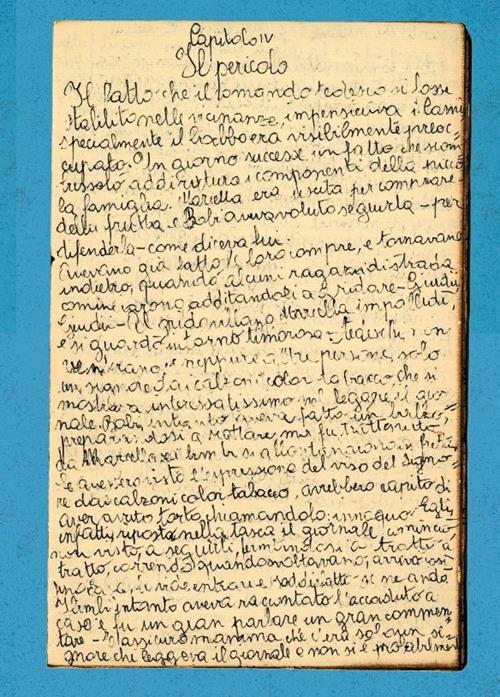 Capitolo IV
Il pericolo
Il fatto che il comando tedesco si fosse
stabilito nelle vicinanze, impensieriva i
specialmente il babbo era visibilmente preoc-
cupato. Un giorno successe un fatto che
addirittura i componenti della picco
la famiglia. Marcella era uscita per comprare
della frutta e Bobi aveva voluto seguirla - per
difenderla - come diceva lui.
Avevano già fatto le loro compre, e tornavano
indietro, quando alcuni ragazzi di strada,
cominciarono additandoli a gridare - Giudei
Giudei - Al grido villano Marcella impallidì,
e si guardò intorno timorosa - tedeschi non
ve n'erano, e neppure altre persone, solo
un signore dai calzoni color tabacco, che si
mostrava interessatissimo nel leggere il gior
nale. Bobi intanto aveva fatto un balzo,
preparandosi a lottare, ma fu trattenuto
da Marcella, ed i bimbi si allontanarono in fretta.
Se avessero visto l'espressione del viso del signo-
re dai calzoni color tabacco, avrebbero capito di
aver avuto torto chiamandolo innocuo - Egli
infatti riposto nella tasca il giornale, cominciò
non visto, a seguirli, fermandosi a tratti a
tratto, correndo quando svoltavano, arrivò così
a casa, li vide entrare e soddisfatto se ne andò
I bimbi intanto aveva raccontato l'accaduto a
casa e fu un gran parlare un gran commen-
tare - rassicurò mamma che c'era sol un si-
gnore che leggeva il giornale e non si è probabilmen